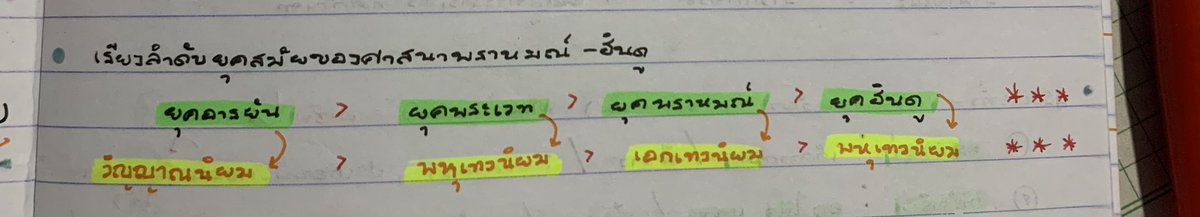 • เรียงลำดับยุคสมัยของศาสนาพราหมณ์ -ฮินดู
ยุคอารยัน > ยุคพระเวท > ยุคพราหมณ์ > ยุคฮินดู ***
วิญญาณนิยม > พหุเทวนิยม > เอกเทวนิยม > พหุเทวนิยม ***